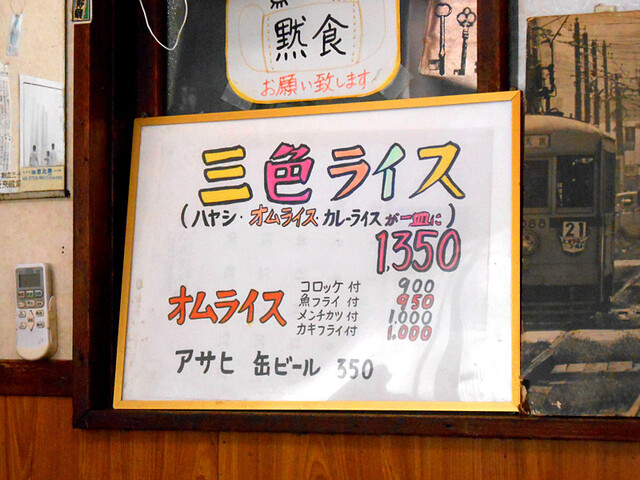 黙食
お願い致します
三色ライス
(ハヤシ・オムライス カレーライスが一皿に)
1,350
オムライス
コロッケ付 900
魚フライ付 950
メンチカツ付 1,000
カキフライ付 1,000
アサヒ 缶ビール 350
21